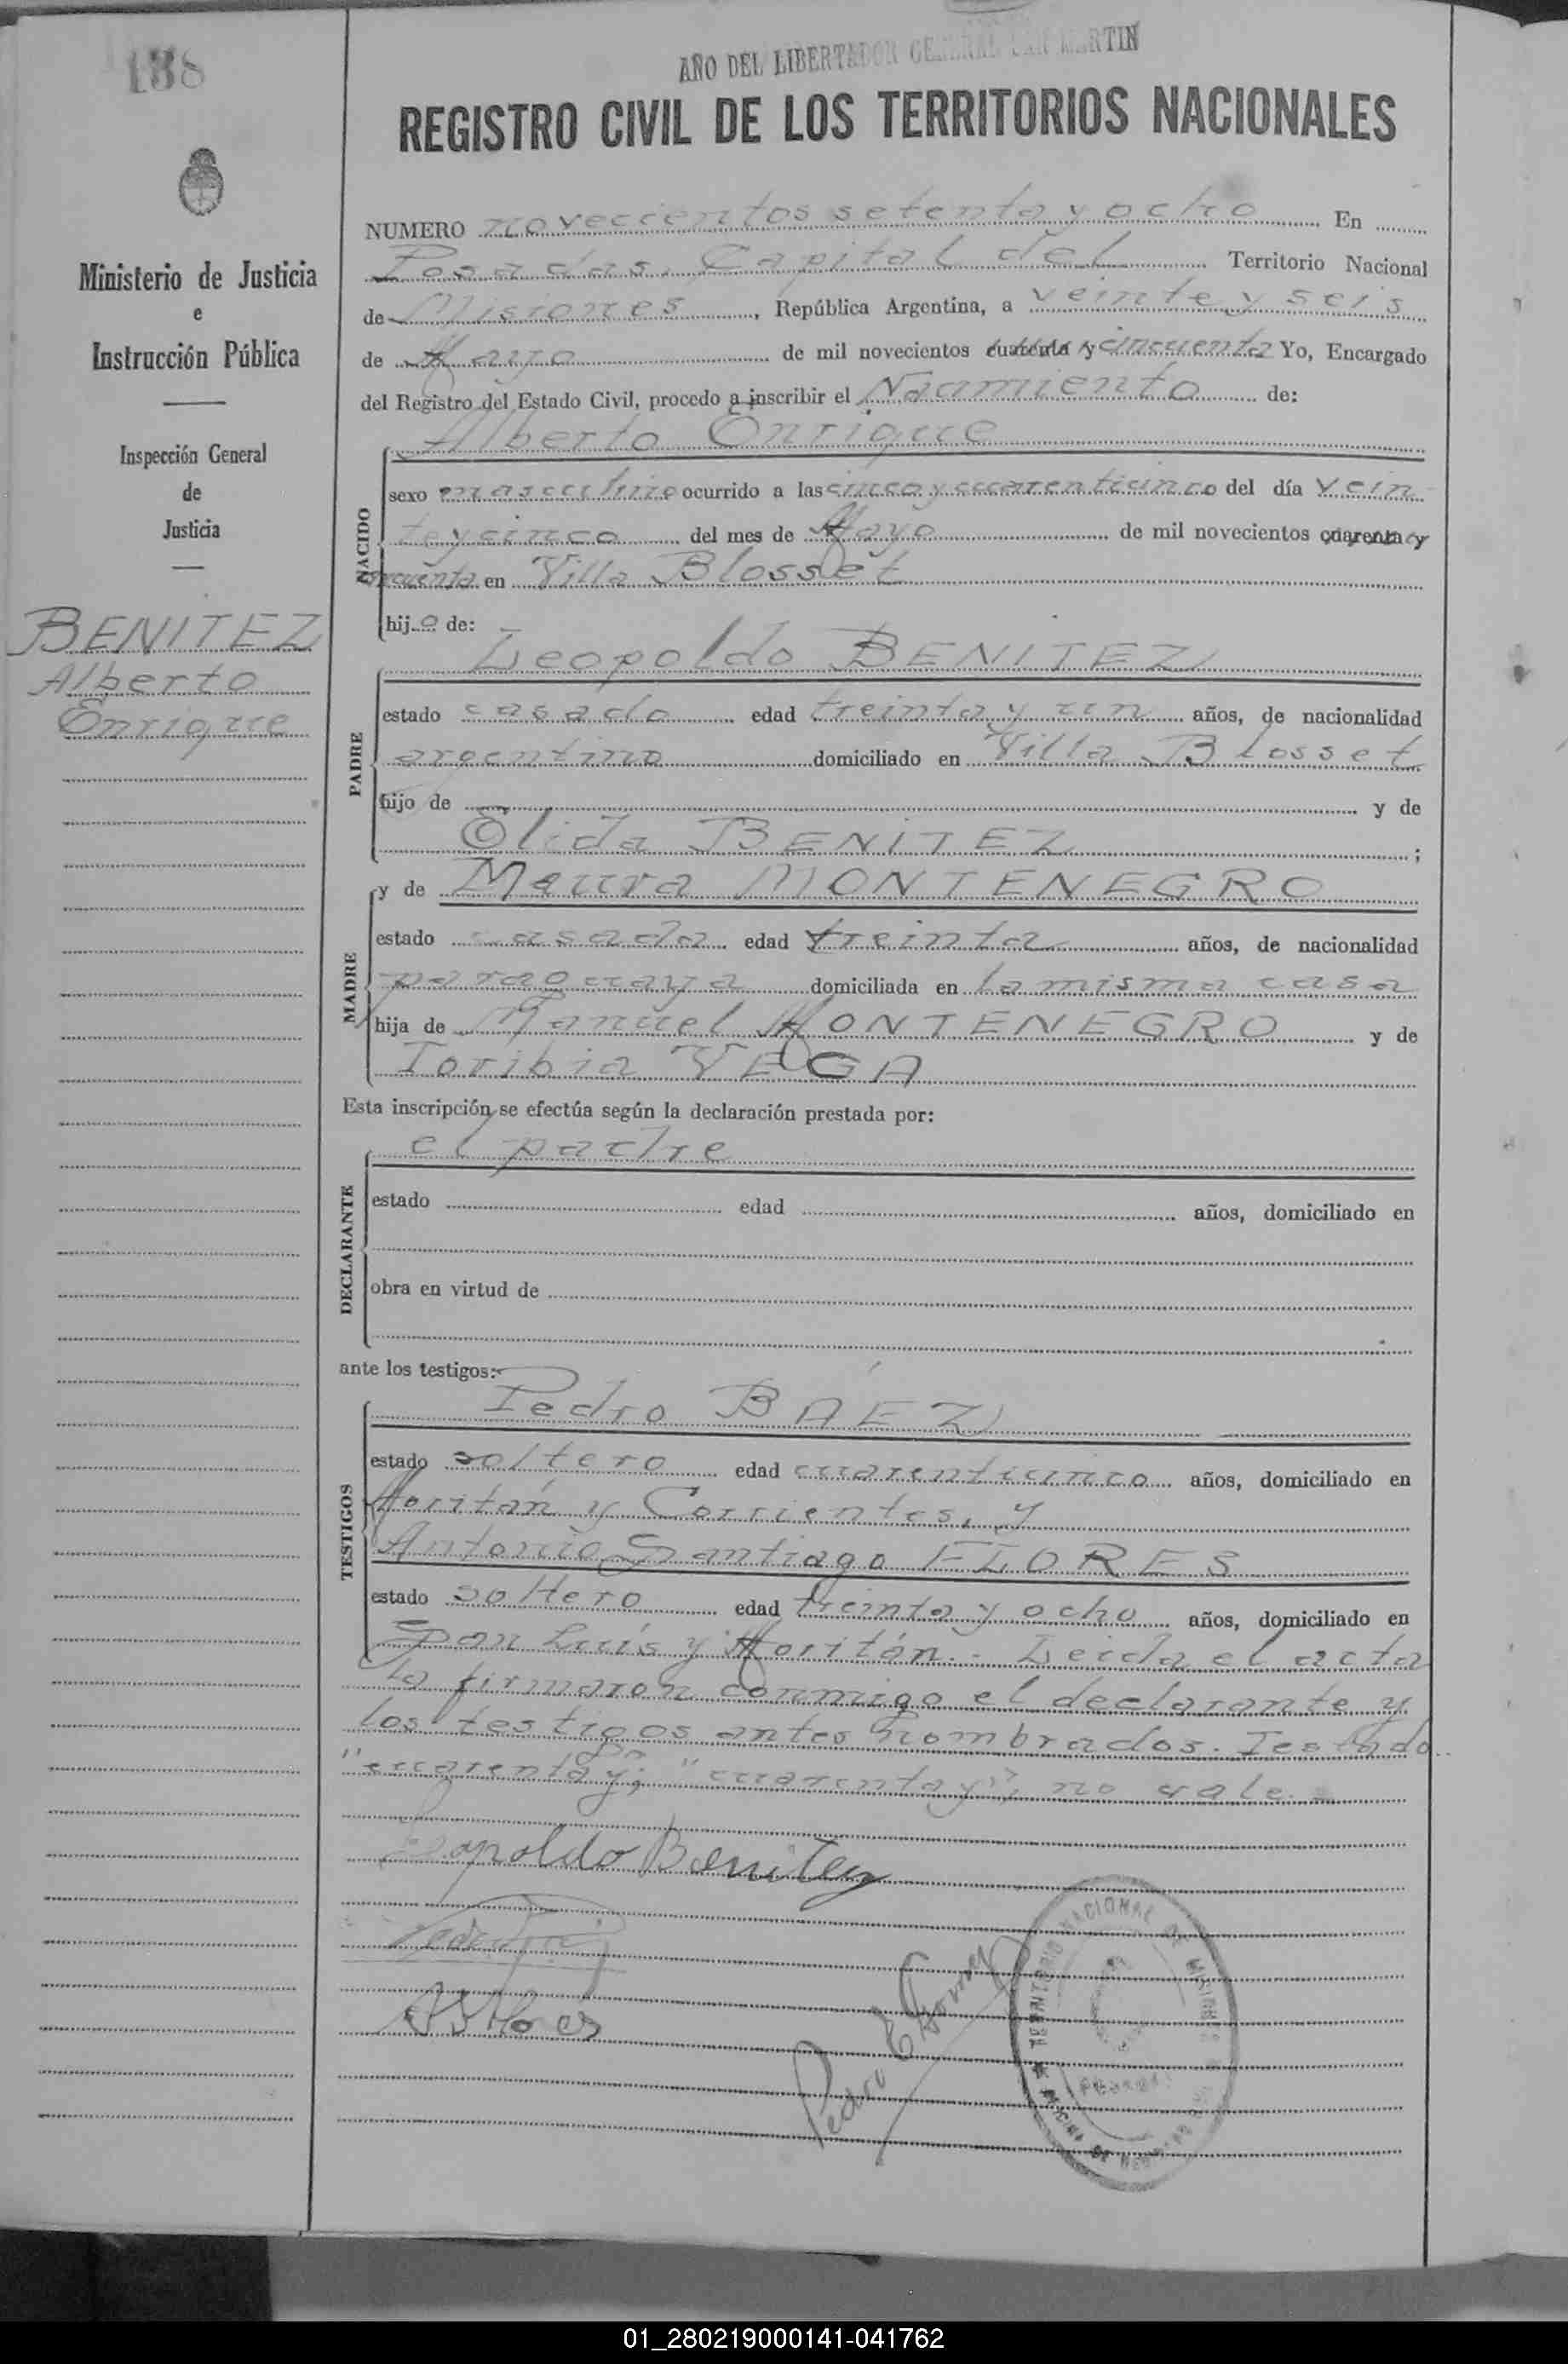 188
AÑO DEL LIBERTADOR GENERAL SAN MARTIN
REGISTRO CIVIL DE LOS TERRITORIOS NACIONALES
Ministerio de Justicia
e
Instrucción Pública
Inspección General
de
Justicia
BENITEZ
Alberto
Enrique
NUMERO novecientos setenta y ocho En
Posadas, Capital del Territorio Nacional
de Misiones, República Argentina, a veinte y seis
de Mayo de mil novecientos cuarenta y cincuenta Yo, Encargado
del Registro del Estado Civil, procedo a inscribir el Naamiento de:
Alberto Enrique
NACIDO
sexo masculino ocurrido a las cinco y cuarenticinco del día vein
te y cinco del mes de Mayo de mil novecientos cuarenta y
cincuenta en Villa Blosset
hijo de:
Leopoldo BENITEZ
PADRE
estado casado edad treinta y un años, de nacionalidad
argentino domiciliado en Villa Blosset
hijo de y de
Elida BENITEZ ;
MADRE
y de Maura MONTENEGRO
estado casada edad treinta años, de nacionalidad
paraguaya domiciliada en la misma casa
hija de Manuel MONTENEGRO y de
Toribia VEGA
Esta inscripción se efectúa según la declaración prestada por:
el padre
DECLARANTE
estado edad años, domiciliado en
obra en virtud de
ante los testigos:
Pedro BÁEZ
TESTIGOS
estado soltero edad cuarenticinco años, domiciliado en
Moritán y Corrientes, y
Antonio Santiago FLORES
estado soltero edad treinta y ocho años, domiciliado en
San Luís y Moritán.- Leida el acta
la firmaron conmigo el declarante y
los testigos antes nombrados. Testado
"cuarenta y"; "cuarenta y", no vale.=
Leopoldo Benitez
Pedro E Gomez
TERRITORIO NACIONAL DE MISIONES
POSADAS
01_280219000141-041762